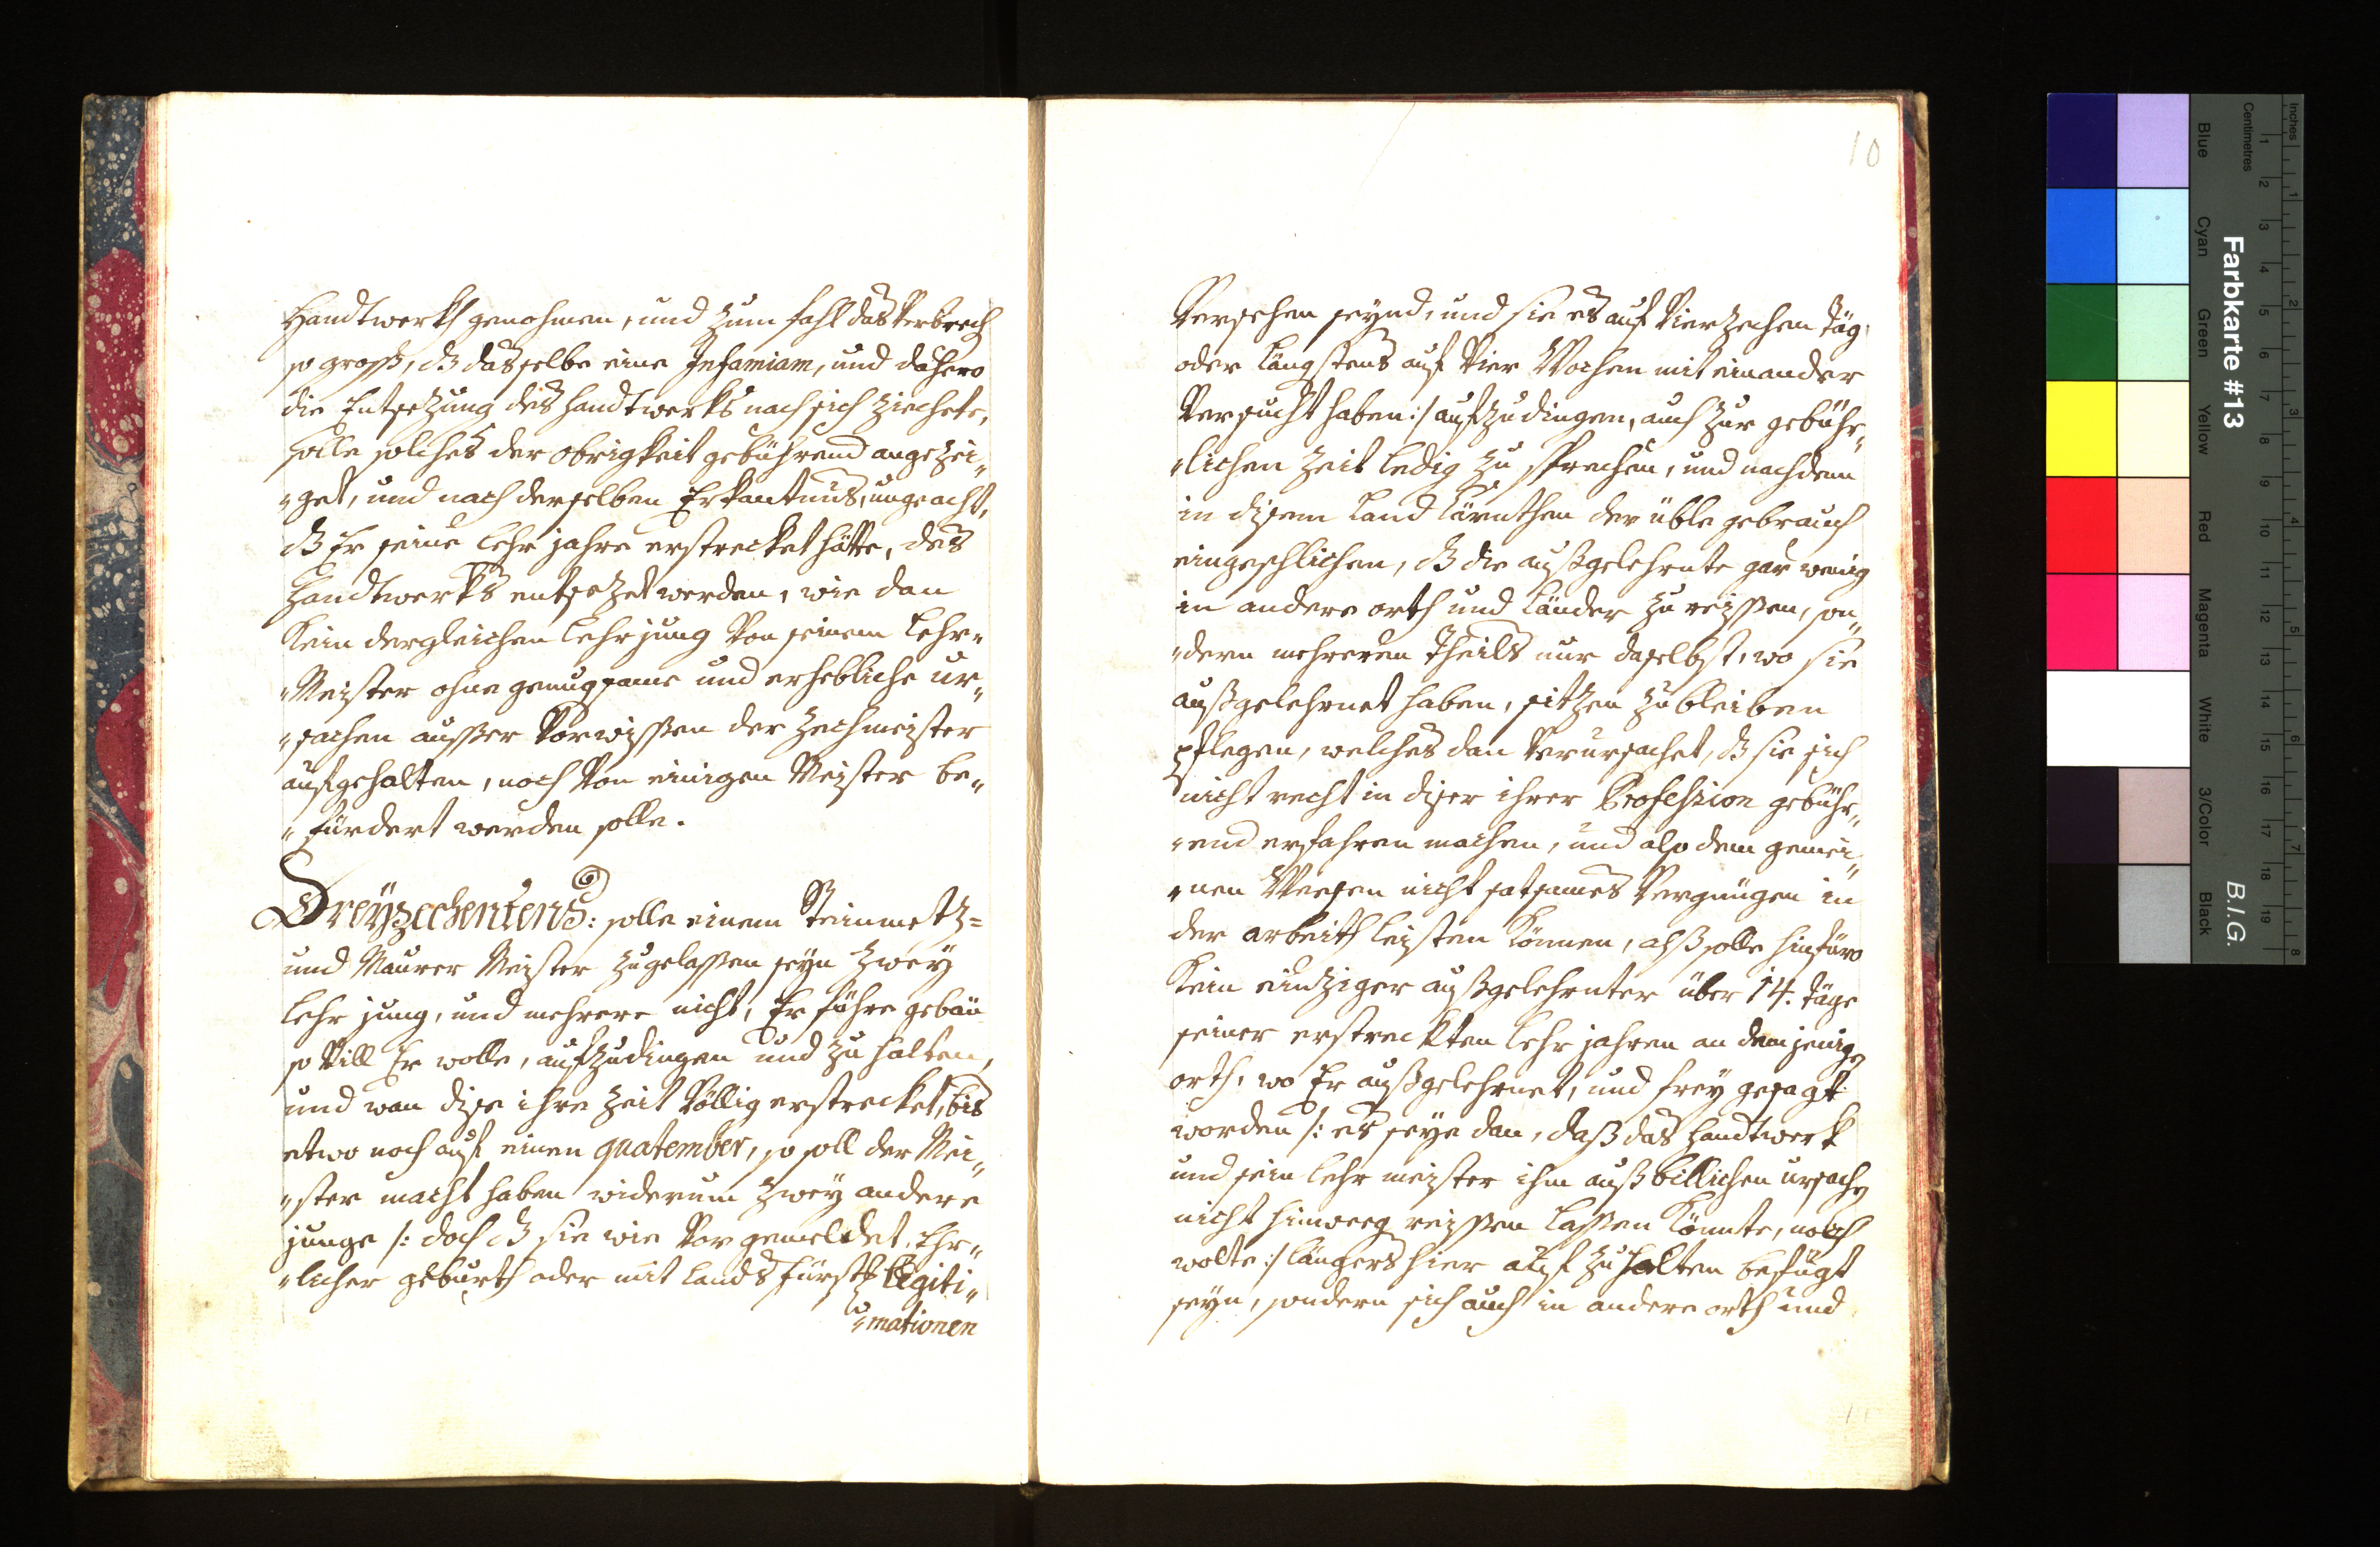 Handtwerkh genohmen, und zum fahl das Verbrech
so groß, dz dasselbe eine Infamiam, und dahero
die Entsezung des Handtwerks nach sich ziechete,
solle solches der obrigkeit gebührend angezei„
„get, und nach derselben Erkantnus, ungeacht,
dz Er seine lehr jahre erstrecket hätte, des
Handtwerks entsezet werden, wie dan
Kein dergleichen lehrjung Von seinem lehr„
„Meister ohne genugsame und erhebliche ur„
„sachen ausser Vorwissen der Zechmeister
aufgehalten, noch Von einigen Meister be„
„fürdert werden solle.
Dreyzechentens: solle einem Steinmetz=
und Maurer Meister zugelassen seyn zwey
lehr jung, und mehrere nicht, Er führe gebäu
so Vill Er wolle, aufzudingen und zu halten,
und wan dise ihre Zeit Völlig erstrecket, bis
etwo noch auf einen quatember, so soll der Mei„
„ster macht haben widerum zwey andere
junge /: doch dz sie wie Vor gemeldet, Ehr„
„licher geburth oder mit lands fürstl: legiti„
„mationen
10
Versehen seynd, und sie es auf Vierzechen täg
oder längstens auf Vier Wochen mit einander
Versucht haben :/ aufzudingen, auch zur gebühr„
„lichen Zeit ledig zu sprechen, und nachdem
in disem Land Kärnthen der üble gebrauch
eingeschlichen, dz die außgelehrnte gar wenig
in andere orth und Länder zu reissen, son„
„dern mehreren Theils nur daselbst, wo sie
außgelehrnet haben, sitzen zu bleiben
pflegen, welches dan Verursachet, dz sie sich
nicht recht in diser ihrer Profession gebühr„
„end erfahren machen, und also dem gemei„
„nen Weesen nicht satsames Vergnügen in
der arbeith leisten Können, alß solle hinfüro
Kein einziger außgelehrnter über 14. täge
seiner erstreckten lehr jahren an dem jenige
orth, wo Er außgelehrnet, und frey gesagt
worden /: es seye dan, daß das Handtwerk
und sein lehr meister ihm auß billichen ursache
nicht hinweeg reissen lassen Könnte, noch
wolte :/ längers hier auf zu halten befugt
seyn, sondern sich auch in andere orth und
Farbkarte #13
B.I.G.
Inches
Centimetres
1 2 3 4 5 6 7 8 9 10 11 12 13 14 15 16 17 18 19
1 2 3 4 5 6 7 8
Blue
Cyan
Green
Yellow
Red
Magenta
White
3/Color
Black